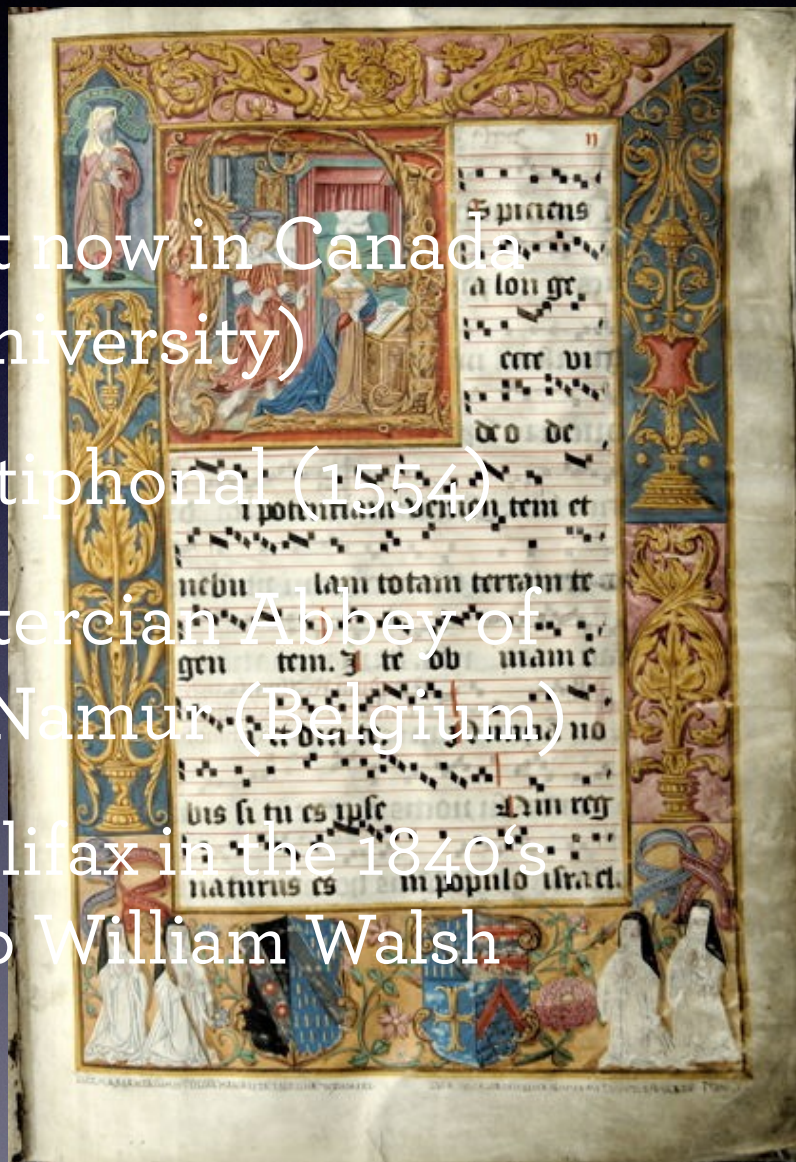 t now in Canada
niversity)
tiphonal (1554)
tercian Abbey of
Namur (Belgium)
lifax in the 1840's
p William Walsh
n
Spiciens
a lon ge
ecce vi
deo de
i potentiam venien tem et
nebu lam totam terram te
gen tem. I te ob viam e
no
bis si tu es ipse Qui reg
naturus es in populo israel.